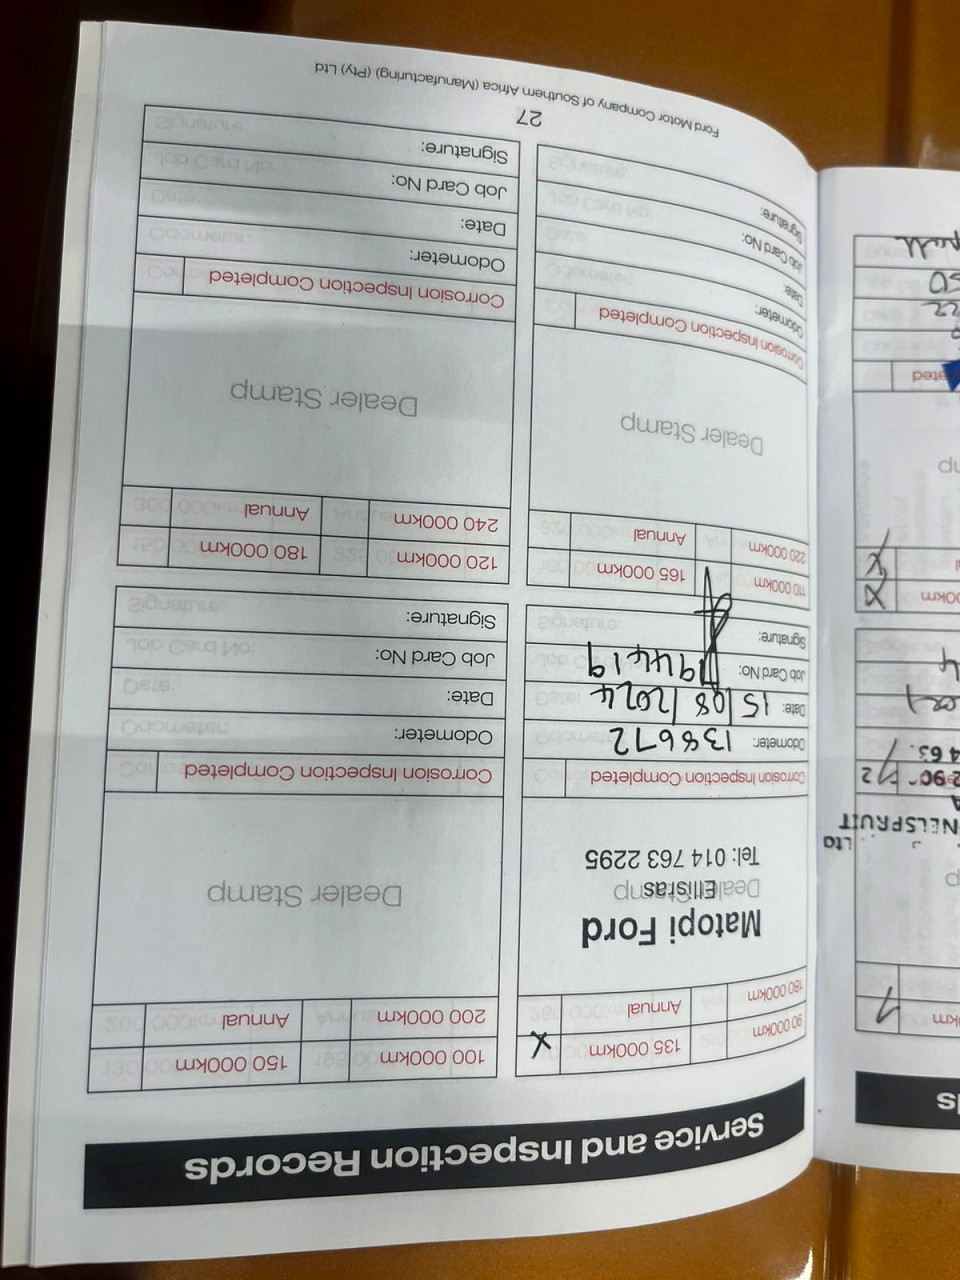 Service and Inspection Records
90 000km 135 000km X
180 000km Annual
Dealer Stamp
Matopi Ford
Ellisras
Tel: 014 763 2295
Corrosion Inspection Completed
Odometer: 138672
Date: 15/08/2024
Job Card No: 194419
Signature:
100 000km 150 000km
200 000km Annual
Dealer Stamp
Corrosion Inspection Completed
Odometer:
Date:
Job Card No:
Signature:
110 000km 165 000km
220 000km Annual
Dealer Stamp
Corrosion Inspection Completed
Odometer:
Date:
Job Card No:
Signature:
120 000km 180 000km
240 000km Annual
Dealer Stamp
Corrosion Inspection Completed
Odometer:
Date:
Job Card No:
Signature:
27
Ford Motor Company of Southern Africa (Manufacturing) (Pty) Ltd
NELSPRUIT